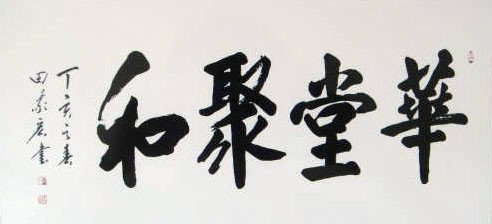 華堂聚和
丁亥之春
田 書